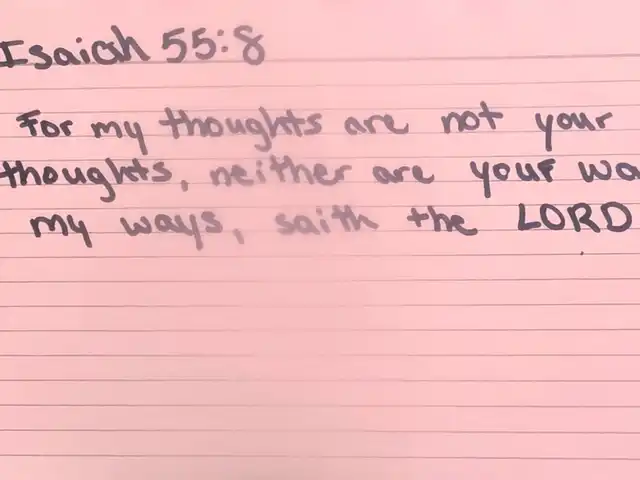 Isaiah 55:8
For my thoughts are not your
thoughts, neither are your wa
my ways, saith the LORD